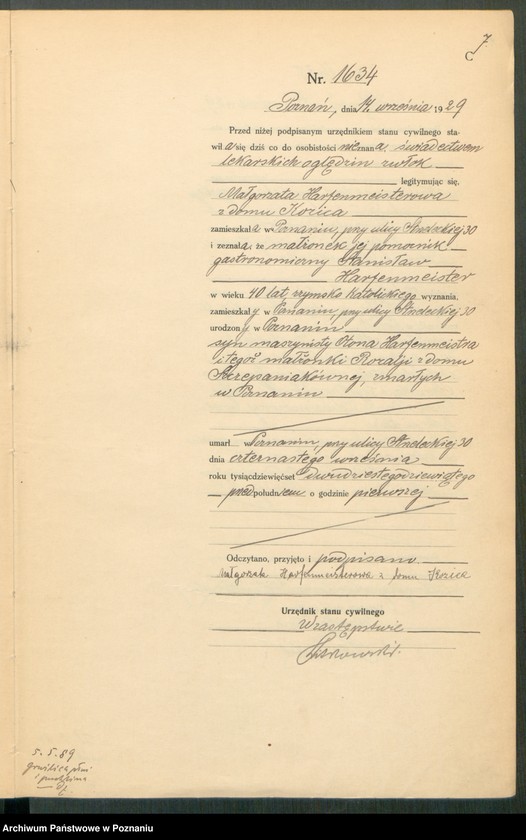 7
C
Nr. 1634
Poznań, dnia 14. września 1929
Przed niżej podpisanym urzędnikiem stanu cywilnego sta-
wiła się dziś co do osobistości nieznana, świadectwem
lekarskich oględzin zwłok
legitymując się,
Małgorzata Harfenmeisterowa
z domu Kozica
zamieszkała w Poznaniu, przy ulicy Strzeleckiej 30
i zeznała, że małżonek jej pomocnik
gastronomiczny Stanisław
Harfenmeister
w wieku 40 lat, rzymsko katolickiego wyznania,
zamieszkały w Poznaniu, przy ulicy Strzeleckiej 30
urodzony w Poznaniu
syn maszynisty Otona Harfenmeistra
i tegoż małżonki Rozalji z domu
Szczepaniakównej, zmarłych
w Poznaniu
umarł w Poznaniu, przy ulicy Strzeleckiej 30
dnia czternastego września
roku tysiącdziewięćset dwudziestegodziewiątego
przed południem o godzinie pierwszej
Odczytano, przyjęto i podpisano
Małgorzata Harfenmeisterowa z domu Kozica
Urzędnik stanu cywilnego
W zastępstwie
5.5.89
Archiwum Państwowe w Poznaniu